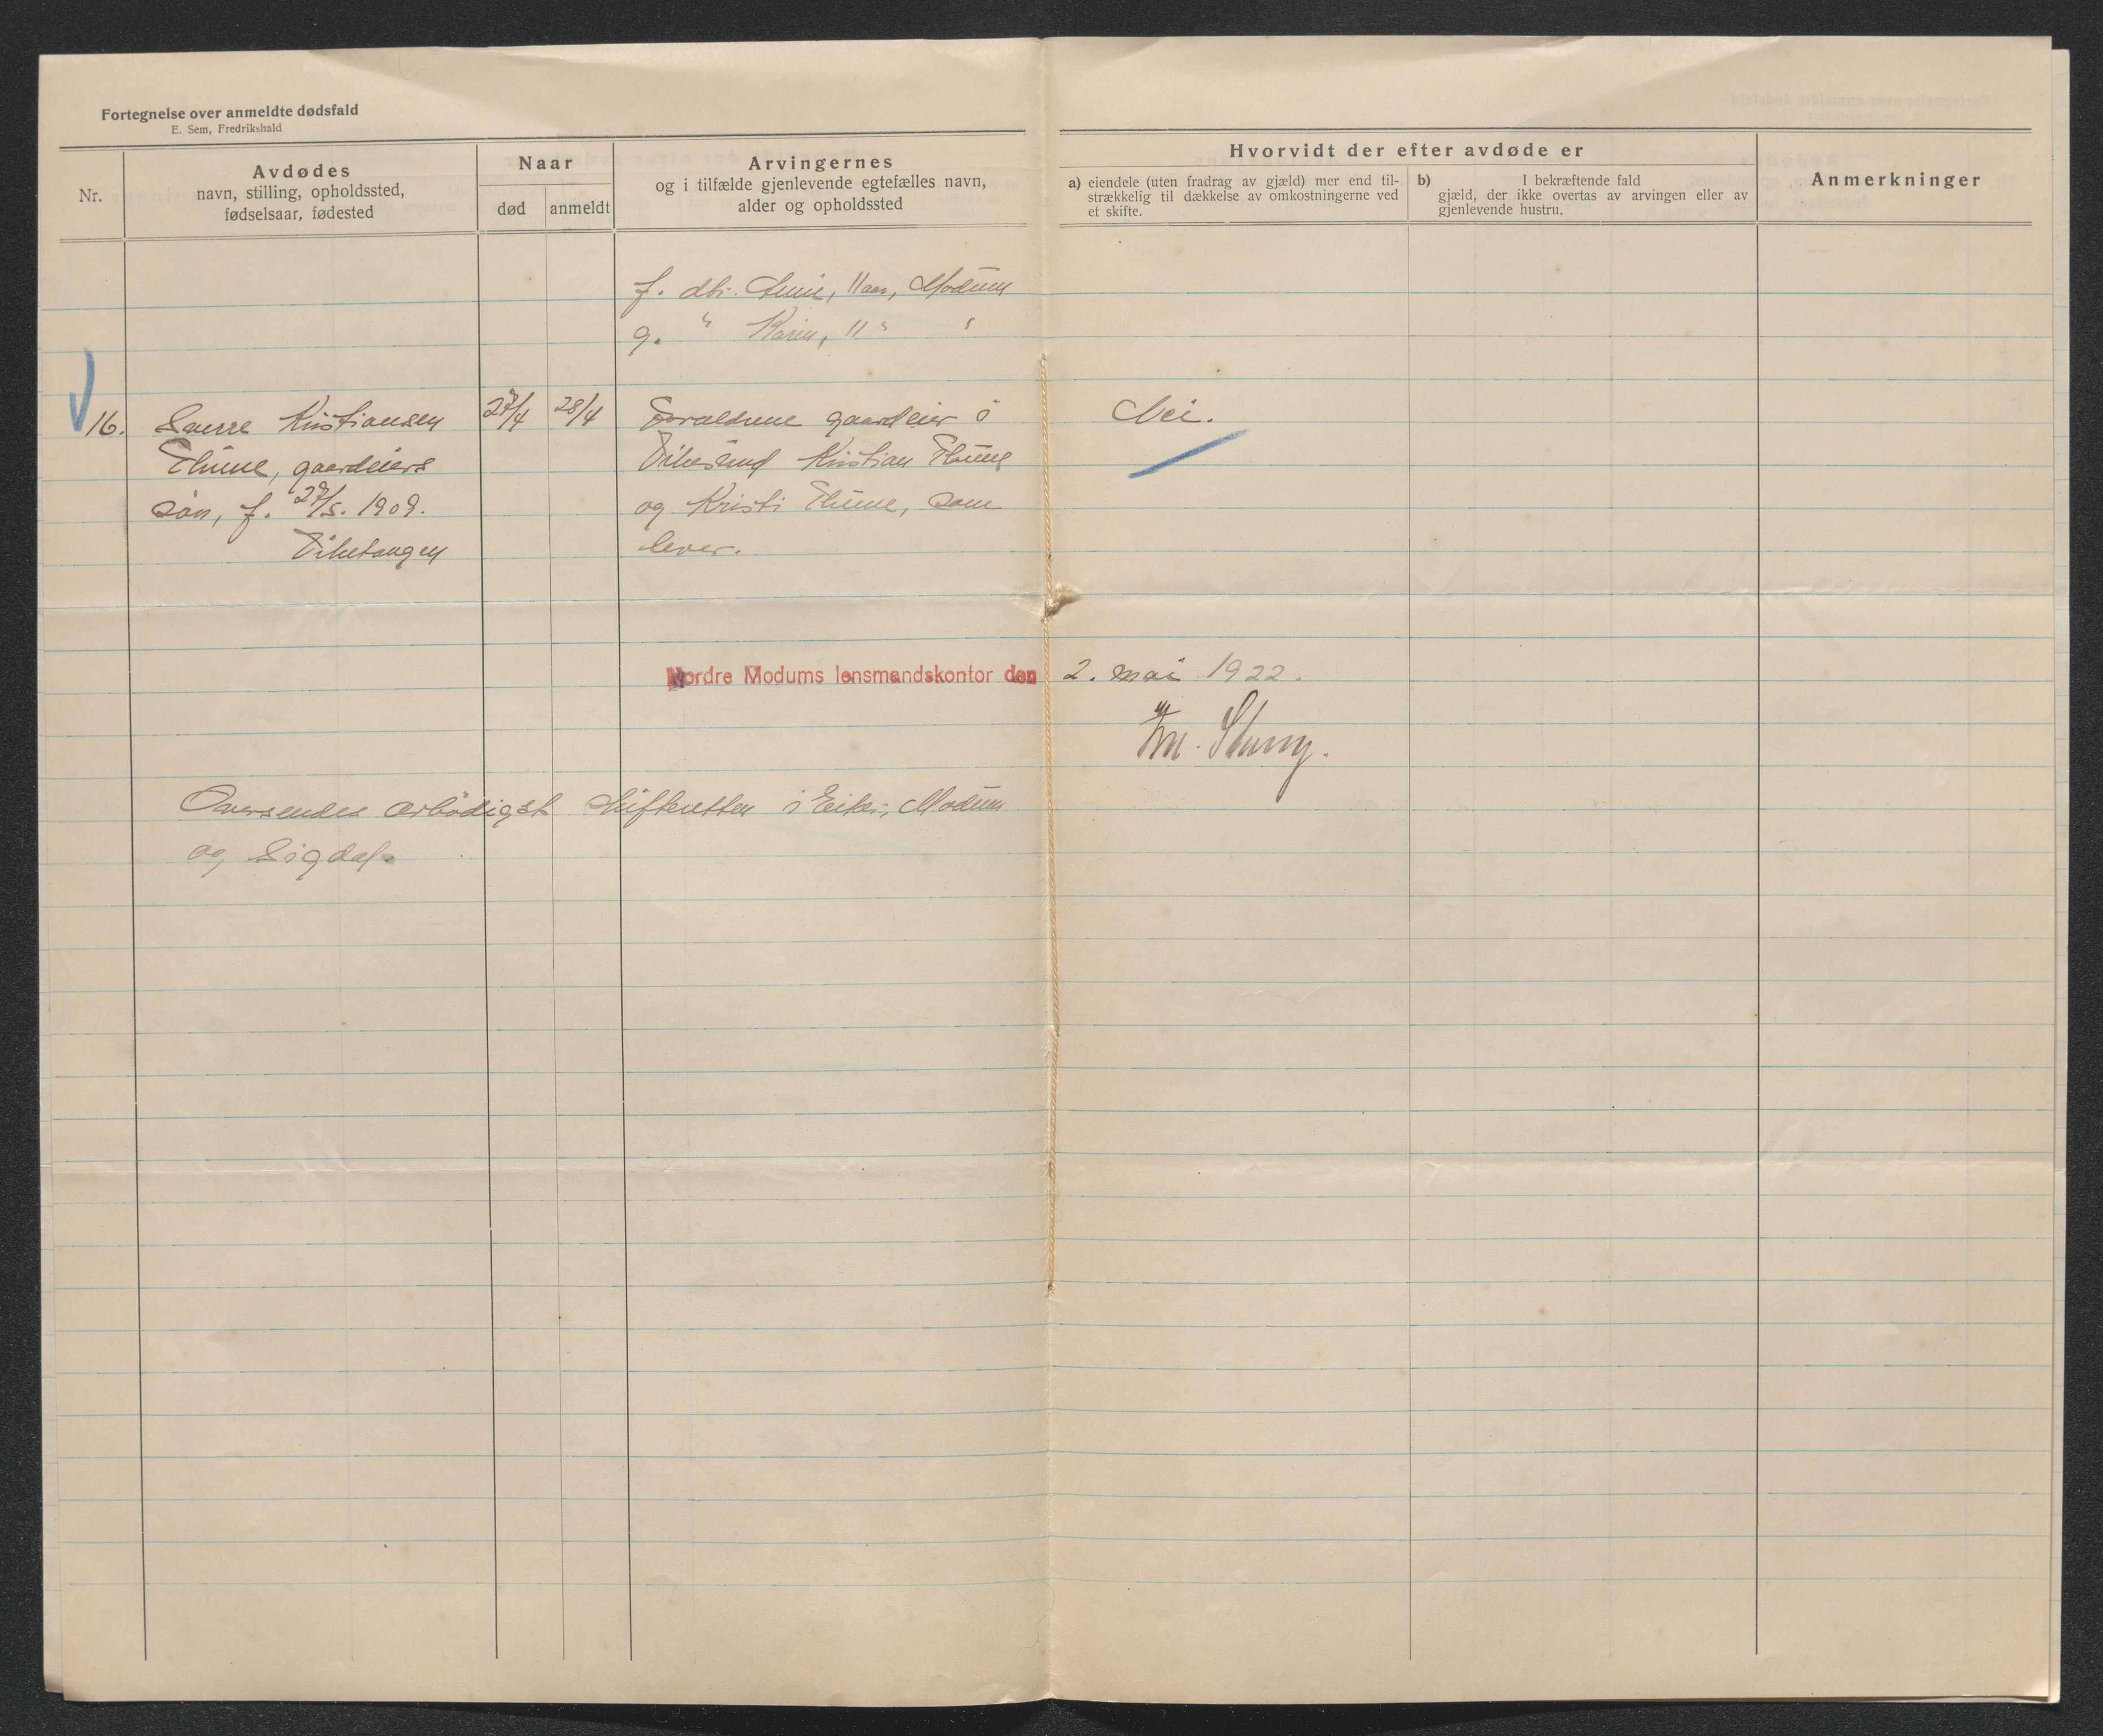 Fortegnelse over anmeldte dødsfald
E. Sem, Fredrikshald
Nr.
Avdødes
navn, stilling, opholdssted,
fødselsaar, fødested
Naar
død
anmeldt
Arvingernes
og i tilfælde gjenlevende egtefælles navn,
alder og opholdssted
Hvorvidt der efter avdøde er
a) eiendele (uten fradrag av gjæld) mer end til-
strækkelig til dækkelse av omkostningerne ved
et skifte.
b) I bekræftende fald
gjæld, der ikke overtas av arvingen eller av
gjenlevende hustru.
Anmerkninger
f. dtr. 11 aar, Modum
g. " Karin, 11 " "
16.
Sverre Kristiansen
Thune, gaardeiers
søn, f. 27/5. 1909.
Viketangen
27/4
28/4
Forældrene gaardeier i
Vikesund Kristian Thune
og Kristi Thune, som
lever.
Nei.
Nordre Modums lensmandskontor den 2. mai 1922.
Oversendes ærbødigst skifteretten i Eiker, Modum
og Sigdal.